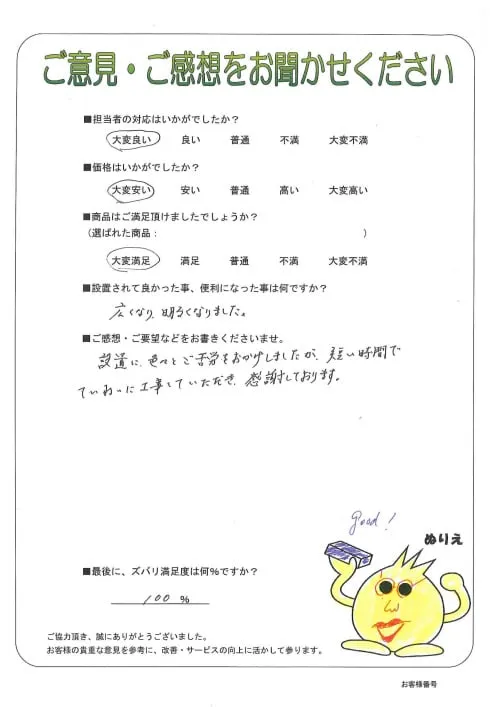 ご意見・ご感想をお聞かせください
■担当者の対応はいかがでしたか?
大変良い 良い 普通 不満 大変不満
■価格はいかがでしたか?
大変安い 安い 普通 高い 大変高い
■商品はご満足頂けましたでしょうか?
(選ばれた商品: )
大変満足 満足 普通 不満 大変不満
■設置されて良かった事、便利になった事は何ですか?
広くなり、明るくなりました。
■ご感想・ご要望などをお書きくださいませ。
設置に、色々とご苦労をおかけしましたが、短い時間で
ていねいに工事していただき、感謝しております。
good!
ぬりえ
■最後に、ズバリ満足度は何%ですか?
100 %
ご協力頂き、誠にありがとうございました。
お客様の貴重な意見を参考に、改善・サービスの向上に活かして参ります。
お客様番号